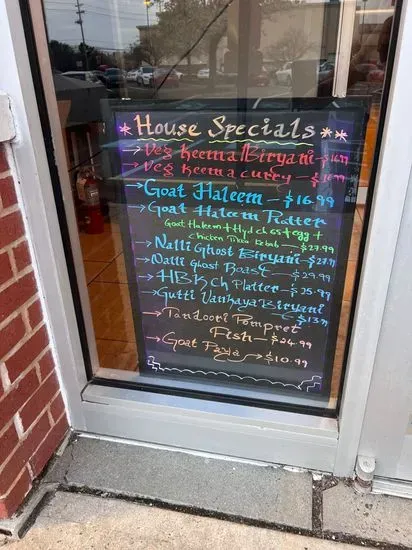 * House Specials **
→ Veg Keema Biryani – $16.99
→ Veg Keema Curry, $16.99
→ Goat Haleem – $16.99
→ Goat Haleem Platter
Goat Haleem + Hyd ch 65 + egg +
Chicken Tikka Kebab – $27.99
→ Nalli Ghost Biryani – $27.99
→ Nalli Ghost Roast – $29.99
→ HBK ch Platter – $25.99
→ Gutti Vankaya Biryani
– $13.99
→ Tandoori Pompret
Fish – $24.99
→ Goat Paya → $10.99